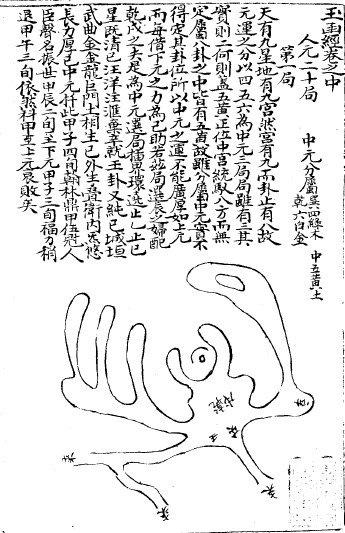 玉函經卷之中
人元二十局　中元分屬 巽四綠木 乾六白金 中五黃土
第一局
天有九星地有九宮然宮有九而卦止有八故
元運之分以四五六為中元三局局雖有三其
實則二何則蓋五黃正位中宮統馭八方而無
定屬八卦之中皆有五黃故雖分屬中元實不
得定其卦位所以中元之運不能廣厚如上元
而毋借下元之力為己助若局選長少婦配
乾戌之夫是為中元選局橫飛環遶止乙止巳
星既清巳汪洋注滙乘載王卦又純巳城垣
武曲金金龍巨門土相生巳外生疊衛內悠
長力厚巳中元此甲子四翰林鼎甲位冠人
臣聲名振世甲辰二旬至下元甲子三旬福力稍
退甲午三旬依然科甲至上元衰敗矣
戌乾